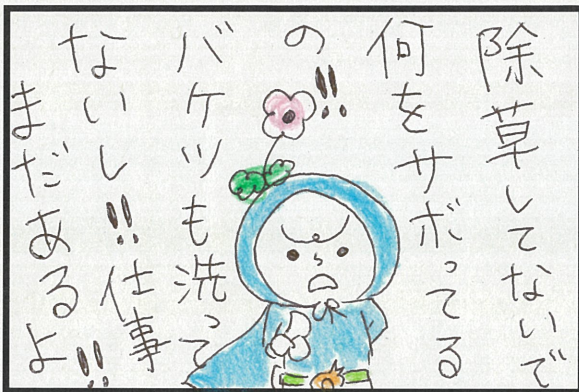 除草してないで
何をサボってる
の!!
バケツも洗って
ないし!!仕事
まだあるよ!!